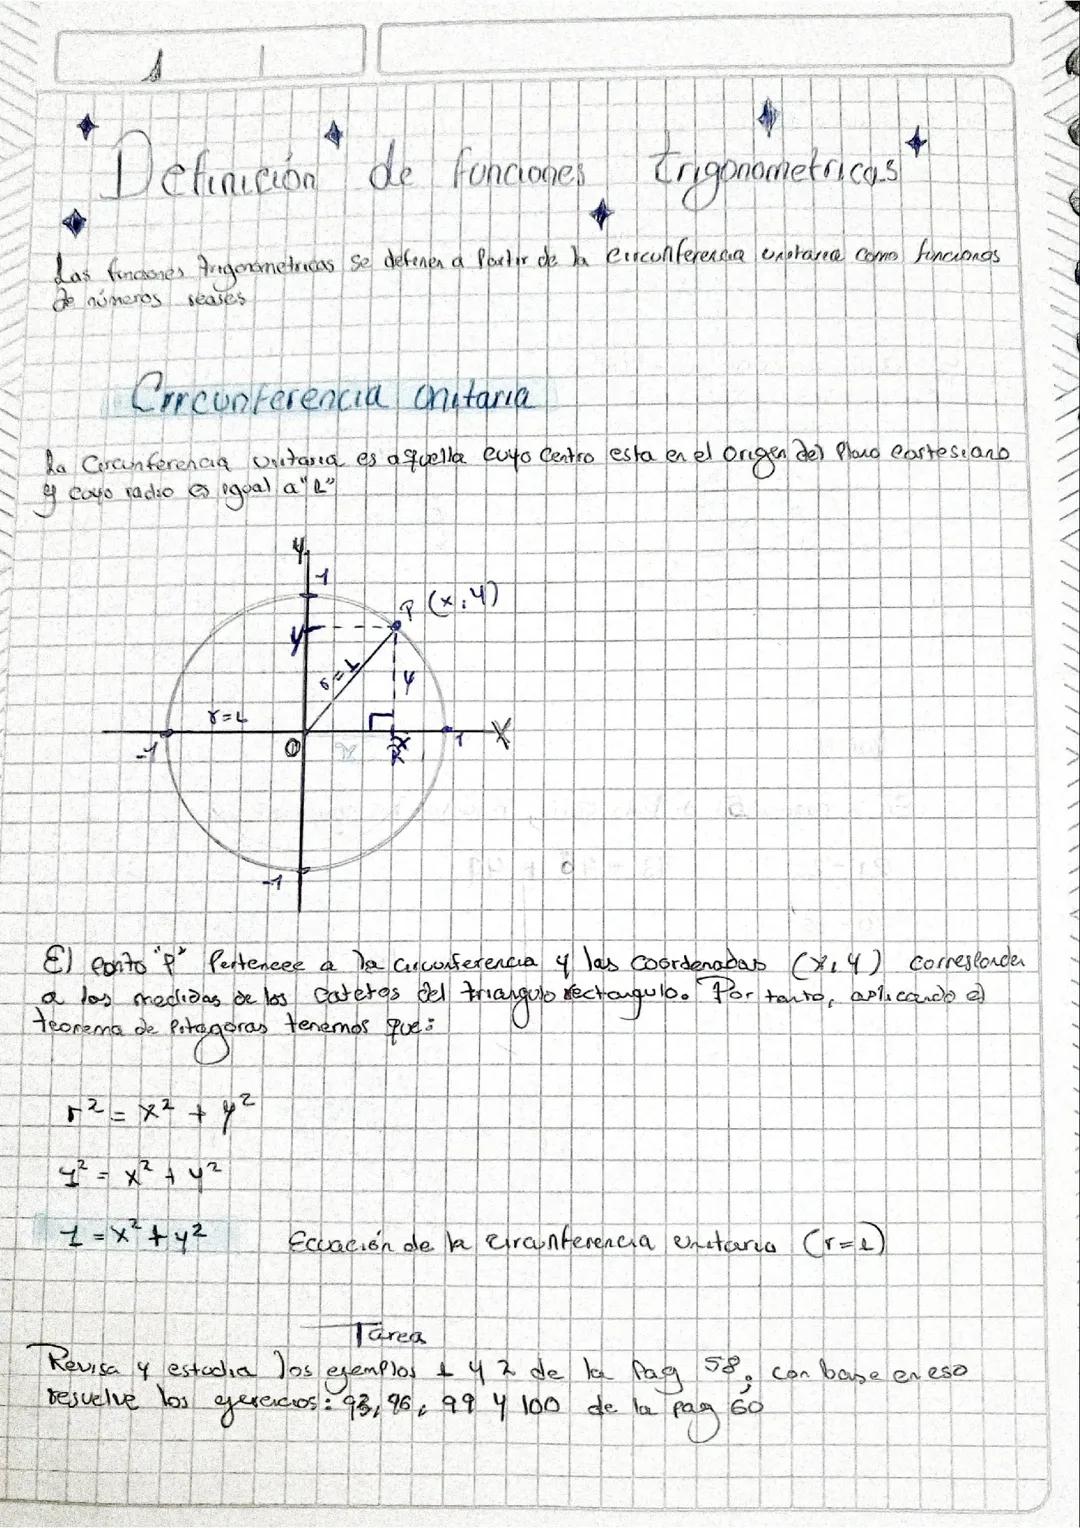 1
Definición de funciones trigonometricas
Las funciones trigonometricas se definen a Partir de la circunferencia unitaria como funciones
de números reales
Circunferencia unitaria
La Circunferencia unitaria es aquella cuyo centro esta en el origen del Plano cartesiano
y cuyo radio es igual a "1"
y
1
P (x,y)
y
r=1
y
r=1
-1
0
x
x
R
1
X
-1
El punto "P" Pertenece a la circunferencia y las coordenadas (x,y) corresponden
a las medidas de los catetos del triangulo rectangulo. Por tanto, aplicando el
teorema de Pitagoras tenemos que:
r² = x² + y²
1² = x² + y²
1 = x² + y² Ecuación de la circunferencia unitaria (r=1)
Tarea
Revisa y estudia los ejemplos 1 y 2 de la Pag 58, con base en eso
resuelve los ejercicios: 93, 96, 99 y 100 de la pag 60